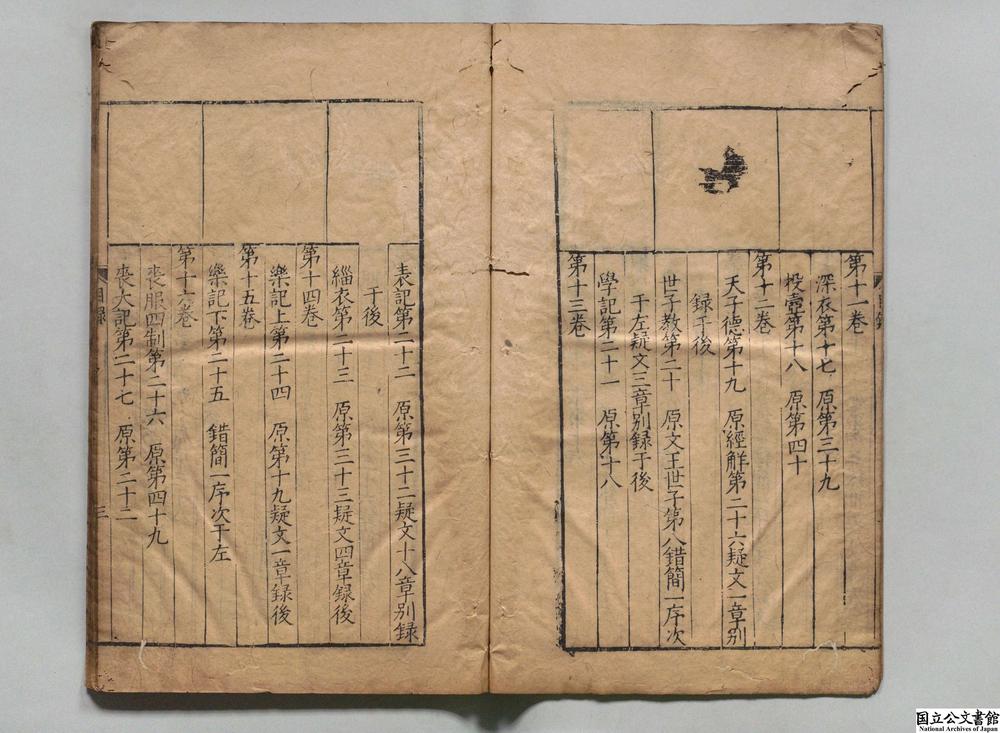 第十一卷
深衣第十七 原第三十九
投壺第十八 原第四十
第十二卷
天子德第十九 原經解第二十六疑文一章別
録于後
世子教第二十 原文王世子第八錯簡一序次
于左疑文三章别録于後
學記第二十一 原第十八
第十三卷
表記第二十二 原第三十二疑文十八章别録
于後
緇衣第二十三 原第三十三疑文四章録後
第十四卷
樂記上第二十四 原第十九疑文一章録後
第十五卷
樂記下第二十五 錯簡一序次于左
第十六卷
喪服四制第二十六 原第四十九
喪大記第二十七 原第二十二
目録
三
国立公文書館
National Archives of Japan